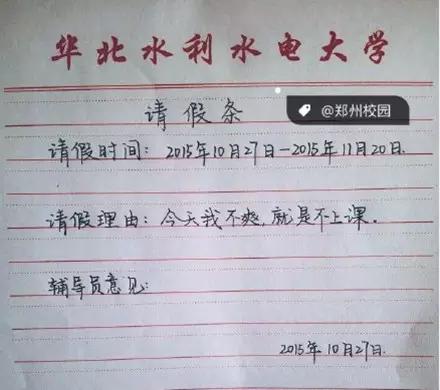 华北水利水电大学
@郑州校园
请假条
请假时间：2015年10月27日-2015年11月20日.
请假理由：今天我不爽，就是不上课.
辅导员意见:
2015年10月27日.